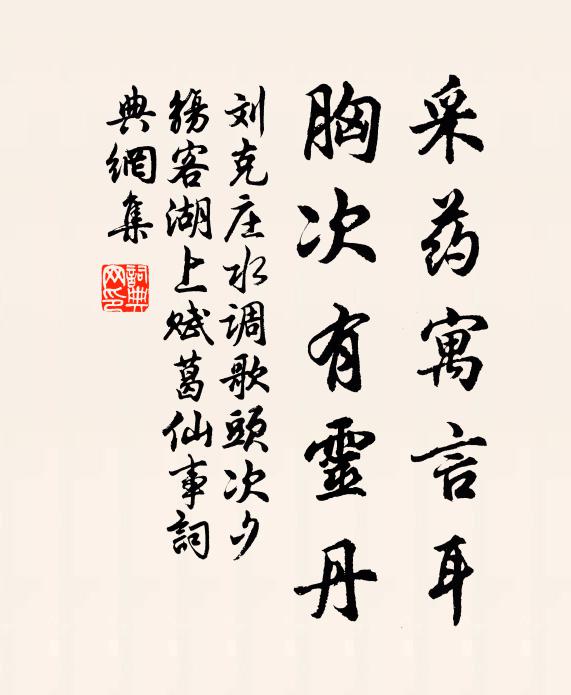 采药寓言耳
胸次有靈丹
刘克庄水调歌頭次夕
觴客湖上赋葛仙事詞
典網集
詞典网印